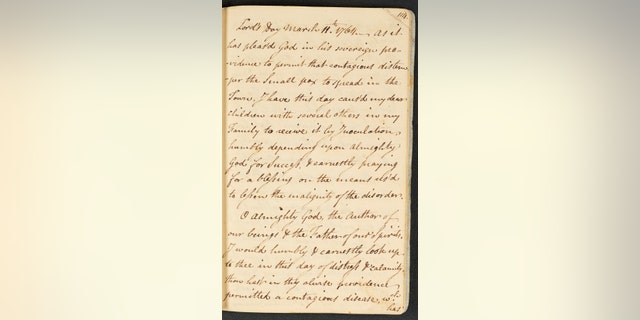 114
Lord's Day March 11th. 1764, as it
has pleas'd God in his sovereign pro-
-vidence to permit that contagious distem
-per the Small pox to spread in the
Town, I have this day caus'd my dear
children with several others in my
Family to receive it by Inoculation,
humbly depending upon almighty
God for Success, & earnestly praying
for a blessing on the means us'd
to lessen the malignity of the disorder.
O Almighty God, the Author of
our beings & the Father of our spirits,
I would humbly & earnestly look up
to thee in this day of distress & calamity,
thou hast in thy alwise providence
permitted a contagious disease, wch
has